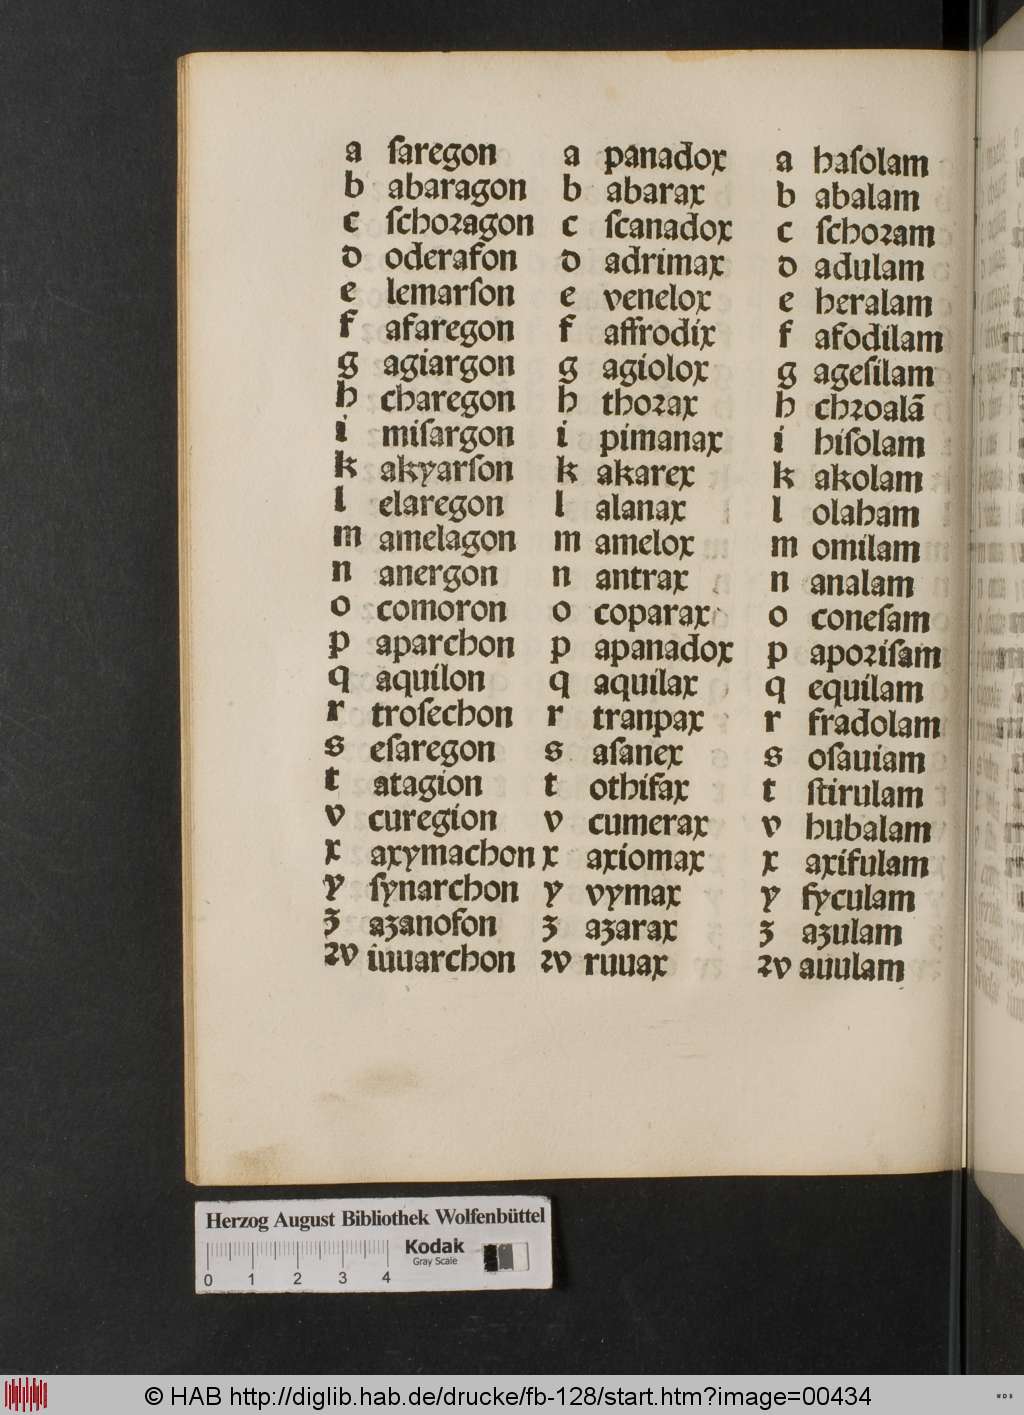 a ſaregon a panadox a haſolam
b abaragon b abarax b abalam
c ſchoꝛagon c ſcanadox c ſchoꝛam
d oderafon d adrimax d adulam
e lemarſon e venelox e heralam
f afaregon f affrodix f afodilam
g agiargon g agiolox g ageſilam
h charegon h thoꝛax h chꝛoalã
i miſargon i pimanax i hiſolam
k akyarſon k akarex k akolam
l elaregon l alanax l olaham
m amelagon m amelox m omilam
n anergon n antrax n analam
o comoron o coparax o coneſam
p aparchon p apanadox p apoꝛiſam
q aquilon q aquilax q equilam
r troſechon r tranpax r fradolam
s eſaregon s aſanex s oſauiam
t atagion t othifax t ſtirulam
v curegion v cumerax v hubalam
x axymachon x axiomax x axifulam
y ſynarchon y vymax y fyculam
ʒ aʒanofon ʒ aʒarax ʒ aʒulam
ꝛv iuuarchon ꝛv ruuax ꝛv auulam
Herzog August Bibliothek Wolfenbüttel
Kodak
Gray Scale
0 1 2 3 4
© HAB http://diglib.hab.de/drucke/fb-128/start.htm?image=00434